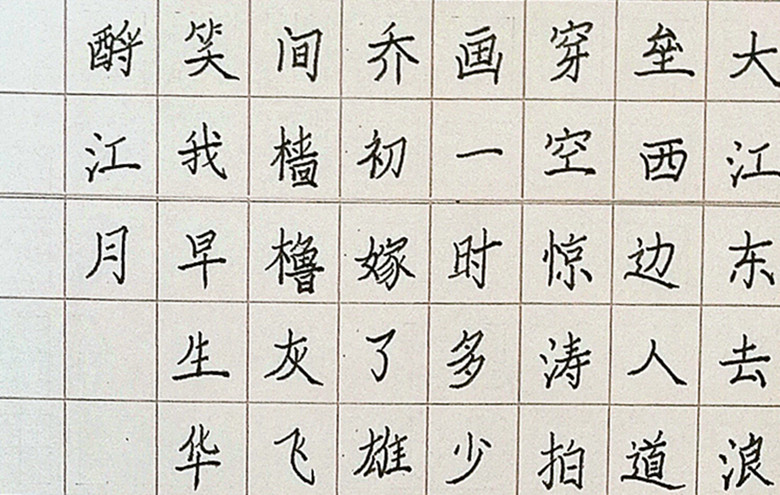 大江东去浪
垒西边人道
穿空惊涛拍
画一时多少
乔初嫁了雄
间樯橹灰飞
笑我早生华
酹江月